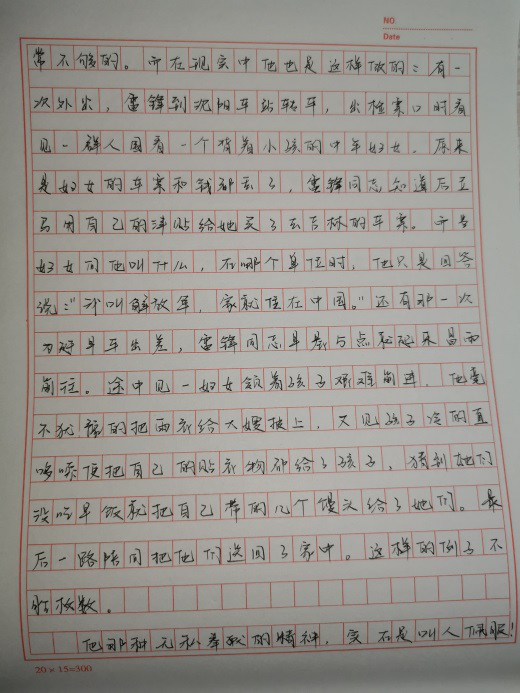 NO.
Date
常不够的。而在现实中他也是这样做的：有一
次外出，雷锋到沈阳车站转车，出检票口时看
见一群人围着一个背着小孩的中年妇女，原来
是妇女的车票和钱都丢了，雷锋同志知道后立
马用自己的津贴给她买了去吉林的车票。而当
妇女问他叫什么，在哪个单位时，他只是回答
说：“我叫解放军，家就住在中国。”还有那一次
为赶早车出差，雷锋同志早晨五点起起来冒雨
前往。途中见一妇女领着孩子艰难前进，他毫
不犹豫的把雨衣给大嫂披上，又见孩子冷的直
哆嗦便把自己的贴衣物都给了孩子，猜到她们
没吃早饭就把自己带的几个馒头给了她们。最
后一路陪同把他们送回了家中。这样的例子不
胜枚数。
他那种无私奉献的精神，实在是叫人佩服！
20×15=300